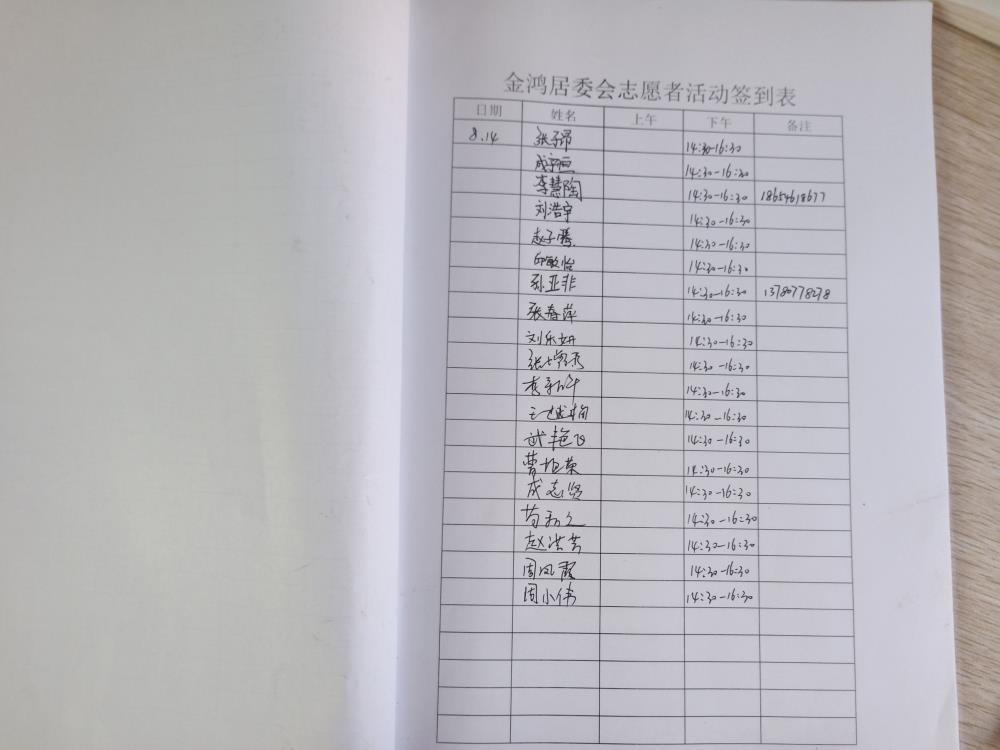 金鸿居委会志愿者活动签到表
日期 姓名 上午 下午 备注
8.14 张子昂 14:30-16:30
成宇恒 14:30-16:30
李慧陶 14:30-16:30 18654618677
刘浩宇 14:30-16:30
赵子腾 14:30-16:30
邱敏怡 14:30-16:30
孙亚非 14:30-16:30 13780778278
张春萍 14:30-16:30
刘乐妍 14:30-16:30
张 14:30-16:30
李 14:30-16:30
王 14:30-16:30
武艳飞 14:30-16:30
曹旭荣 14:30-16:30
成志贤 14:30-16:30
14:30-16:30
赵洪芳 14:30-16:30
周凤霞 14:30-16:30
周小伟 14:30-16:30